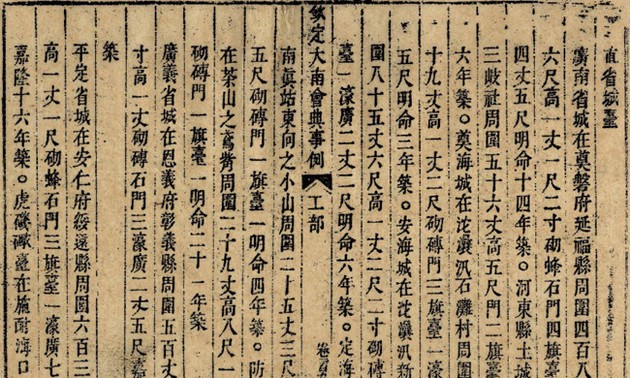 直省城臺
廣南省城在奠磐府延福縣周圍四百八
六尺高一丈一尺二寸砌蜂石門四旗臺
四丈五尺明命十四年築。河東縣土城
三歧社周圍五十六丈高五尺門二旗臺
六年築。奠海城在沱㶞汛石灘村周圍
十九丈高一丈二尺砌磚門三旗臺一濠
五尺明命三年築。安海城在沱㶞汛新
圍八十五丈六尺高一丈二尺二寸砌磚
臺一濠廣二丈二尺明命六年築。定海
欽定大南會典事例 工部
南眞站東向之小山周圍二十五丈三尺
五尺砌磚門一旗臺一明命四年築。防
在茶山之鳶觜周圍二十九丈高八尺一
砌磚門一旗臺一明命二十一年築
廣義省城在思義府彰義縣周圍五百丈
寸高一丈砌磚石門三濠廣二丈五尺嘉
築
平定省城在安仁府綏遠縣周圍六百三
高一丈一尺砌蜂石門三旗臺一濠廣七
嘉隆十六年築。虎磯礮臺在施耐海口